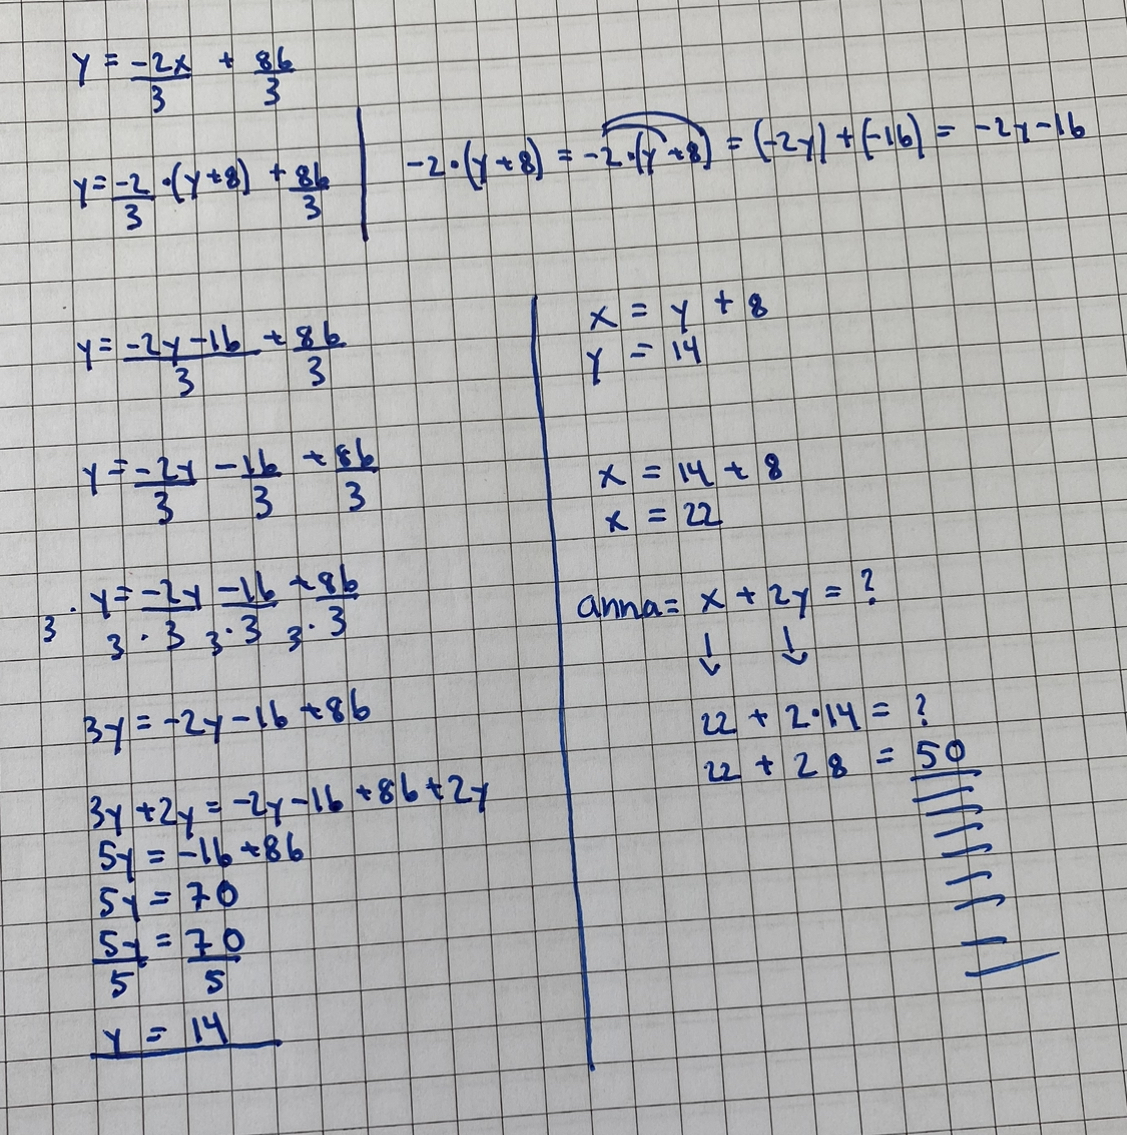 y = -2x/3 + 86/3
y = -2/3 · (y+8) + 86/3
-2·(y+8) = -2·(y+8) = (-2y)+(-16) = -2y-16
y = -2y-16/3 + 86/3
y = -2y/3 -16/3 +86/3
3 · y = -2y/3 · 3 -16/3 · 3 +86/3 · 3
3y = -2y-16+86
3y+2y = -2y-16+86+2y
5y = -16+86
5y = 70
5y/5 = 70/5
y = 14
x = y + 8
y = 14
x = 14 + 8
x = 22
anna = x + 2y = ?
↓ ↓
22 + 2·14 = ?
22 + 28 = 50